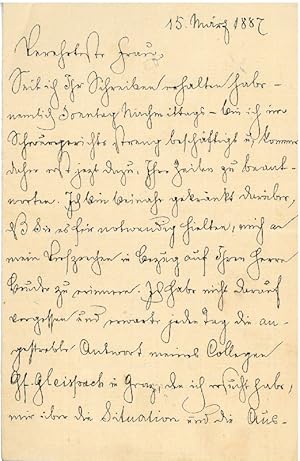 15. März 1887
Verehrteste Frau,
Seit ich Ihr Schreiben erhalten habe -
nemlich Sonntag Nachmittags - bin ich im
Schwurgerichte streng beschäftigt u. komme
daher erst jetzt dazu, Ihre Zeilen zu beant-
worten. Ich bin beinahe gekränkt darüber,
daß Sie es für notwendig hielten, mich an
mein Versprechen in Bezug auf Ihren Herrn
Bruder zu erinnern. Ich habe nicht darauf
vergessen und erwarte jeden Tag die an-
gestrebte Antwort meines Collegen
Gf. Gleispach in Graz, den ich ersucht habe,
mir über die Situation und die Aus-